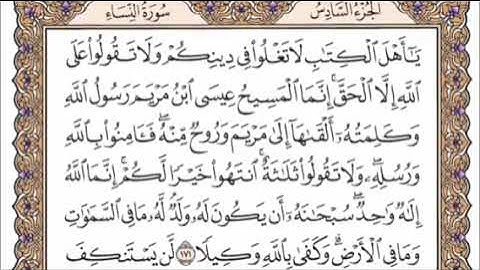 الجزء السادس
سورة النساء
يَـٰٓأَهْلَ ٱلْكِتَـٰبِ لَا تَغْلُوا۟ فِى دِينِكُمْ وَلَا تَقُولُوا۟ عَلَى
ٱللَّهِ إِلَّا ٱلْحَقَّ ۚ إِنَّمَا ٱلْمَسِيحُ عِيسَى ٱبْنُ مَرْيَمَ رَسُولُ ٱللَّهِ
وَكَلِمَتُهُۥٓ أَلْقَىٰهَآ إِلَىٰ مَرْيَمَ وَرُوحٌ مِّنْهُ ۖ فَـَٔامِنُوا۟ بِٱللَّهِ
وَرُسُلِهِۦ ۖ وَلَا تَقُولُوا۟ ثَلَـٰثَةٌ ۚ ٱنتَهُوا۟ خَيْرًا لَّكُمْ ۚ إِنَّمَا ٱللَّهُ
إِلَـٰهٌ وَٰحِدٌ ۖ سُبْحَـٰنَهُۥٓ أَن يَكُونَ لَهُۥ وَلَدٌ ۘ لَّهُۥ مَا فِى ٱلسَّمَـٰوَٰتِ
وَمَا فِى ٱلْأَرْضِ ۗ وَكَفَىٰ بِٱللَّهِ وَكِيلًا ١٧١ لَّن يَسْتَنكِفَ